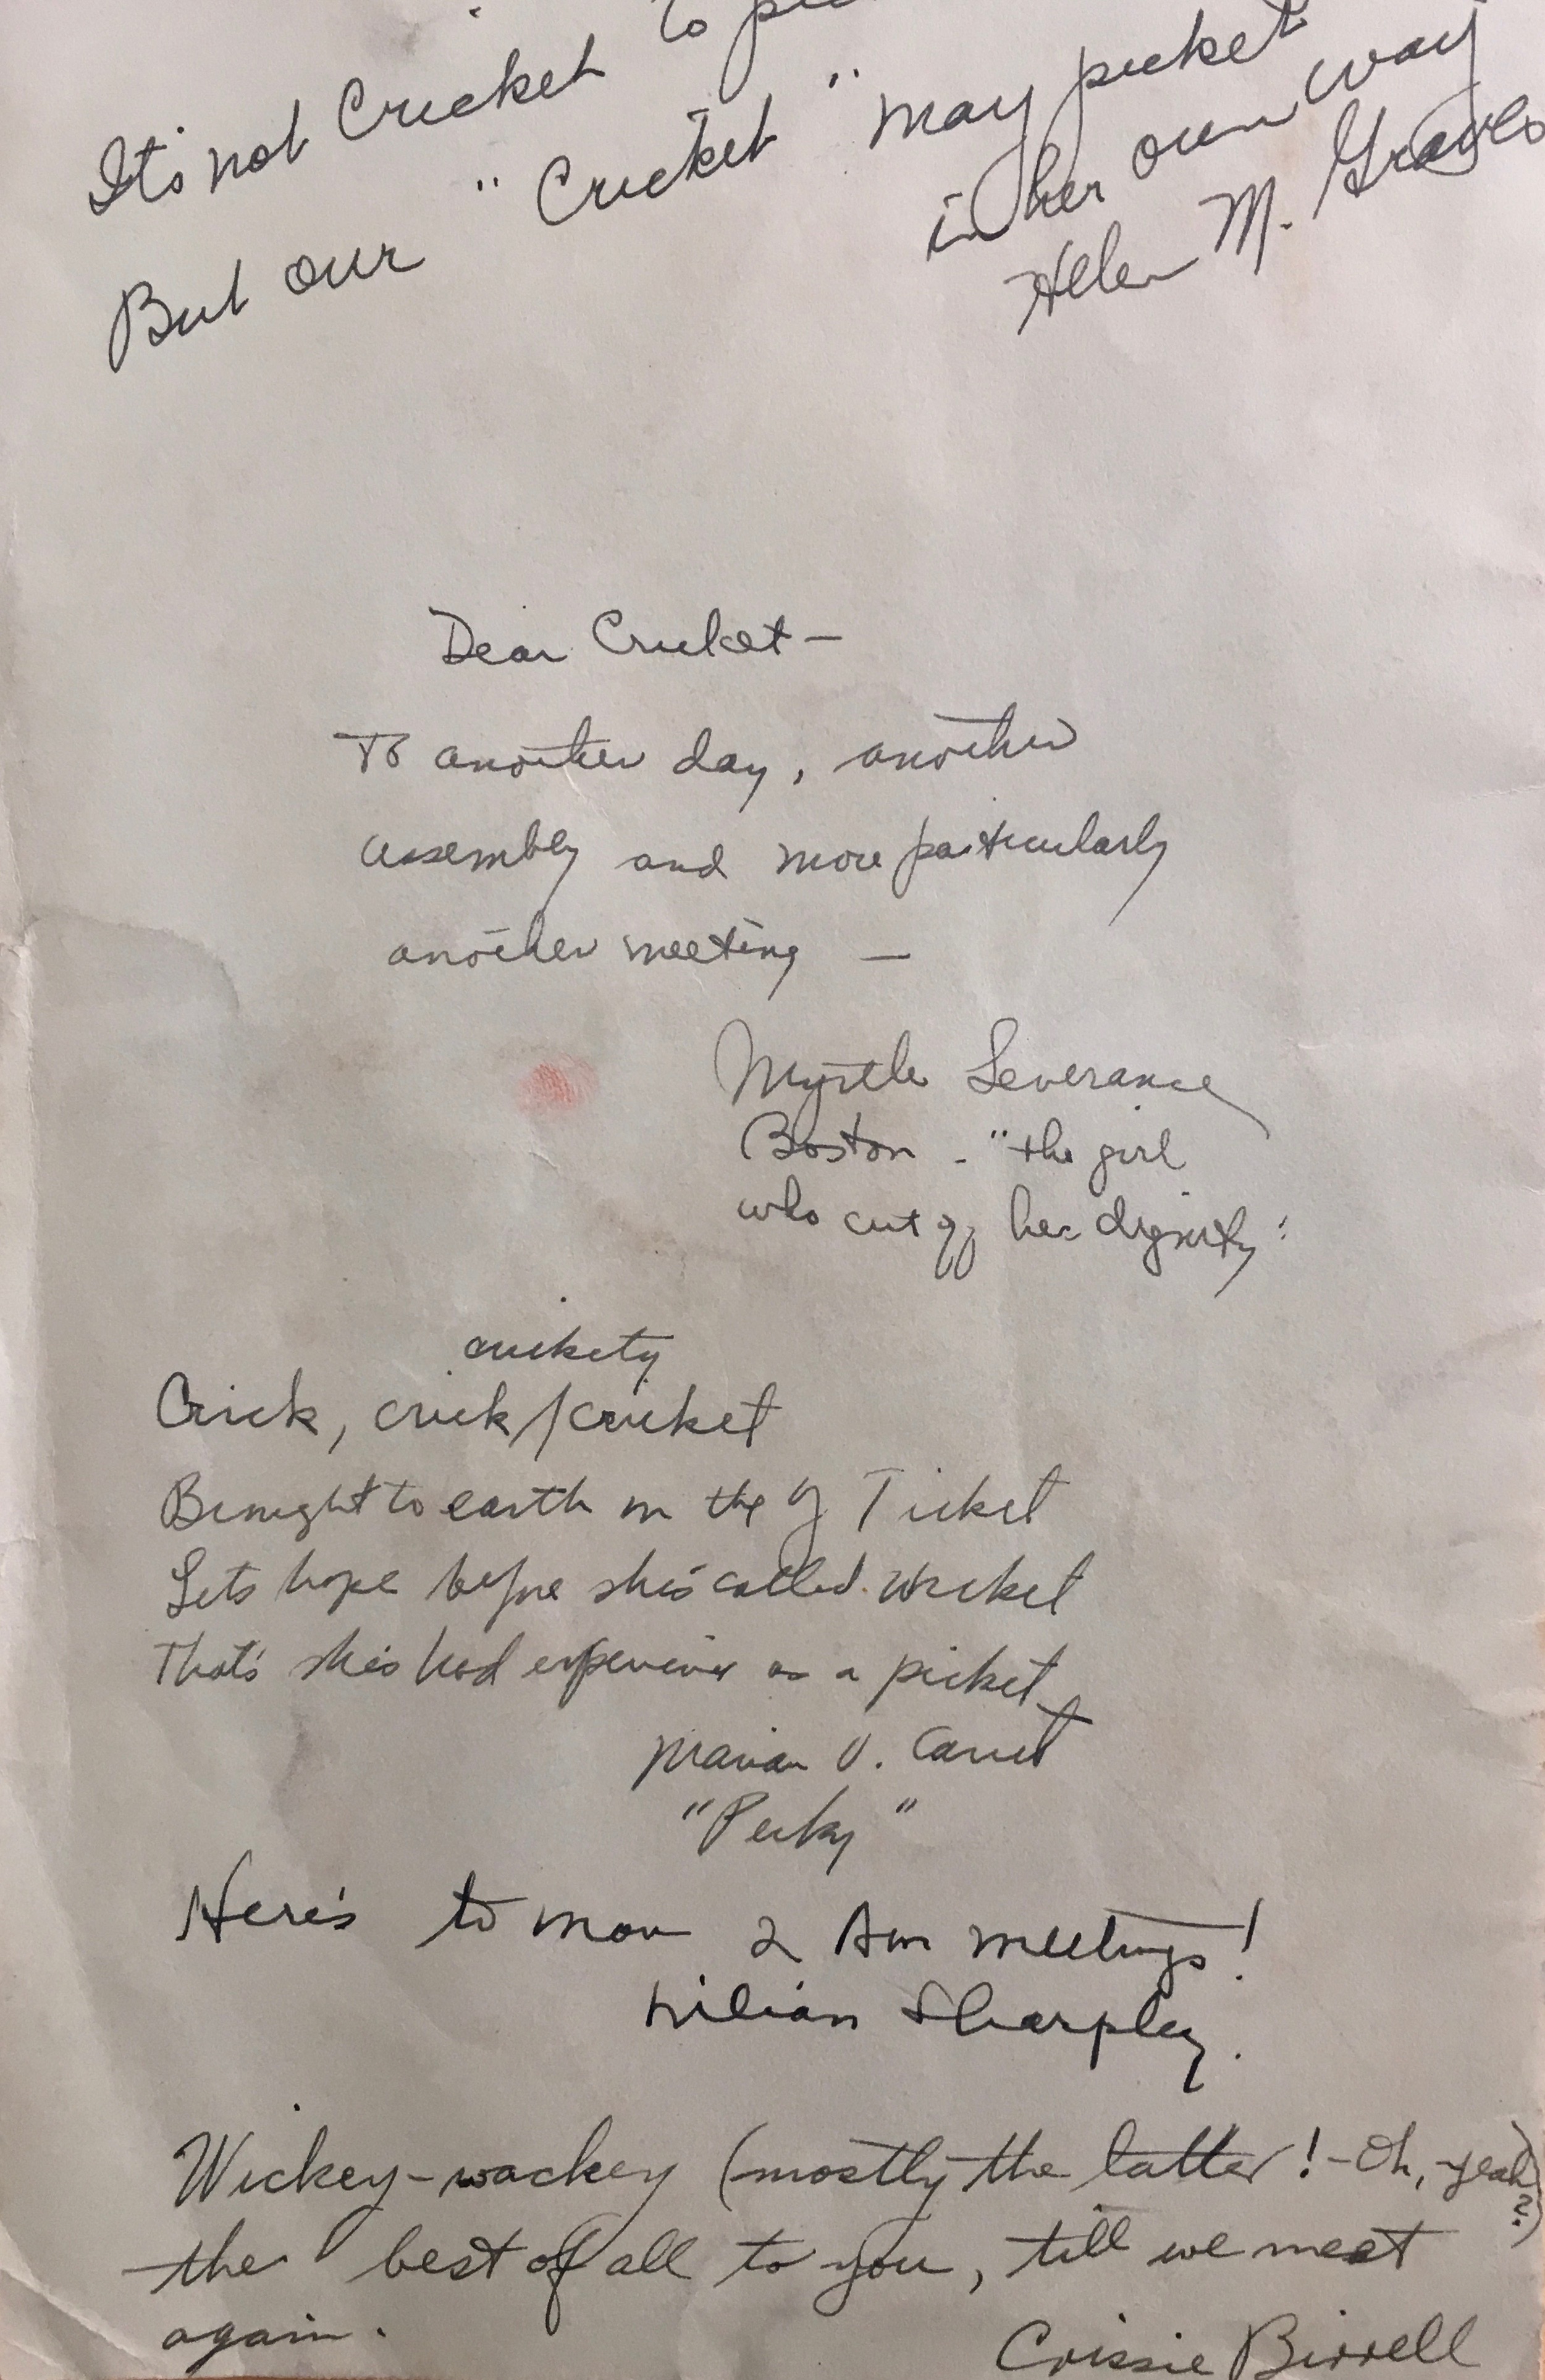 It's not Cricket to
But our "Cricket" may picket
in her own way
Helen M. Graves
Dear Cricket—
To another day, another
assembly and more particularly
another meeting —
Myrtle Severance
Boston - "the girl
who cut off her dignity!
crickety
Crick, crick/cricket
Brought to earth on the y Ticket
Lets hope before she's called wicket
That she's had experience as a picket
Marian V.
"Perky"
Here's to more 2 Am meetings!
Lilian Sharpley.
Wickey-wackey (mostly the latter! - Oh, yeah?)
the best of all to you, till we meet
again.
Crissie Birrell